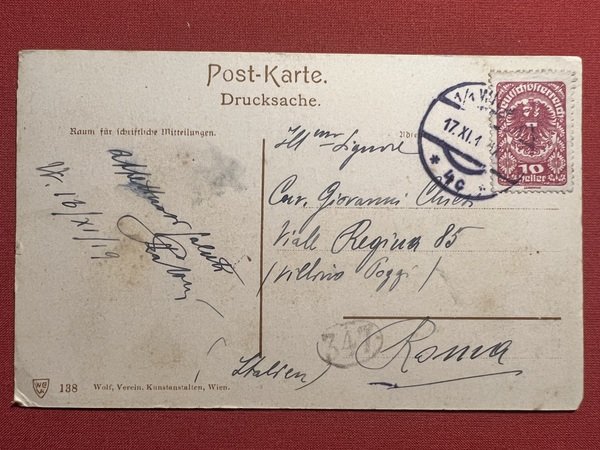 Post-Karte.
Drucksache.
Raum für schriftliche Mitteilungen.
W. 16/XI/19
saluti
1/1 W
17.XI.1
* 4c *
Deutschösterreich
10
Heller
Ill.mo Signore
Cav. Giovanni
Viale Regina 85
(Villino Poggi)
Roma
(Italien)
347
138 Wolf, Verein. Kunstanstalten, Wien.